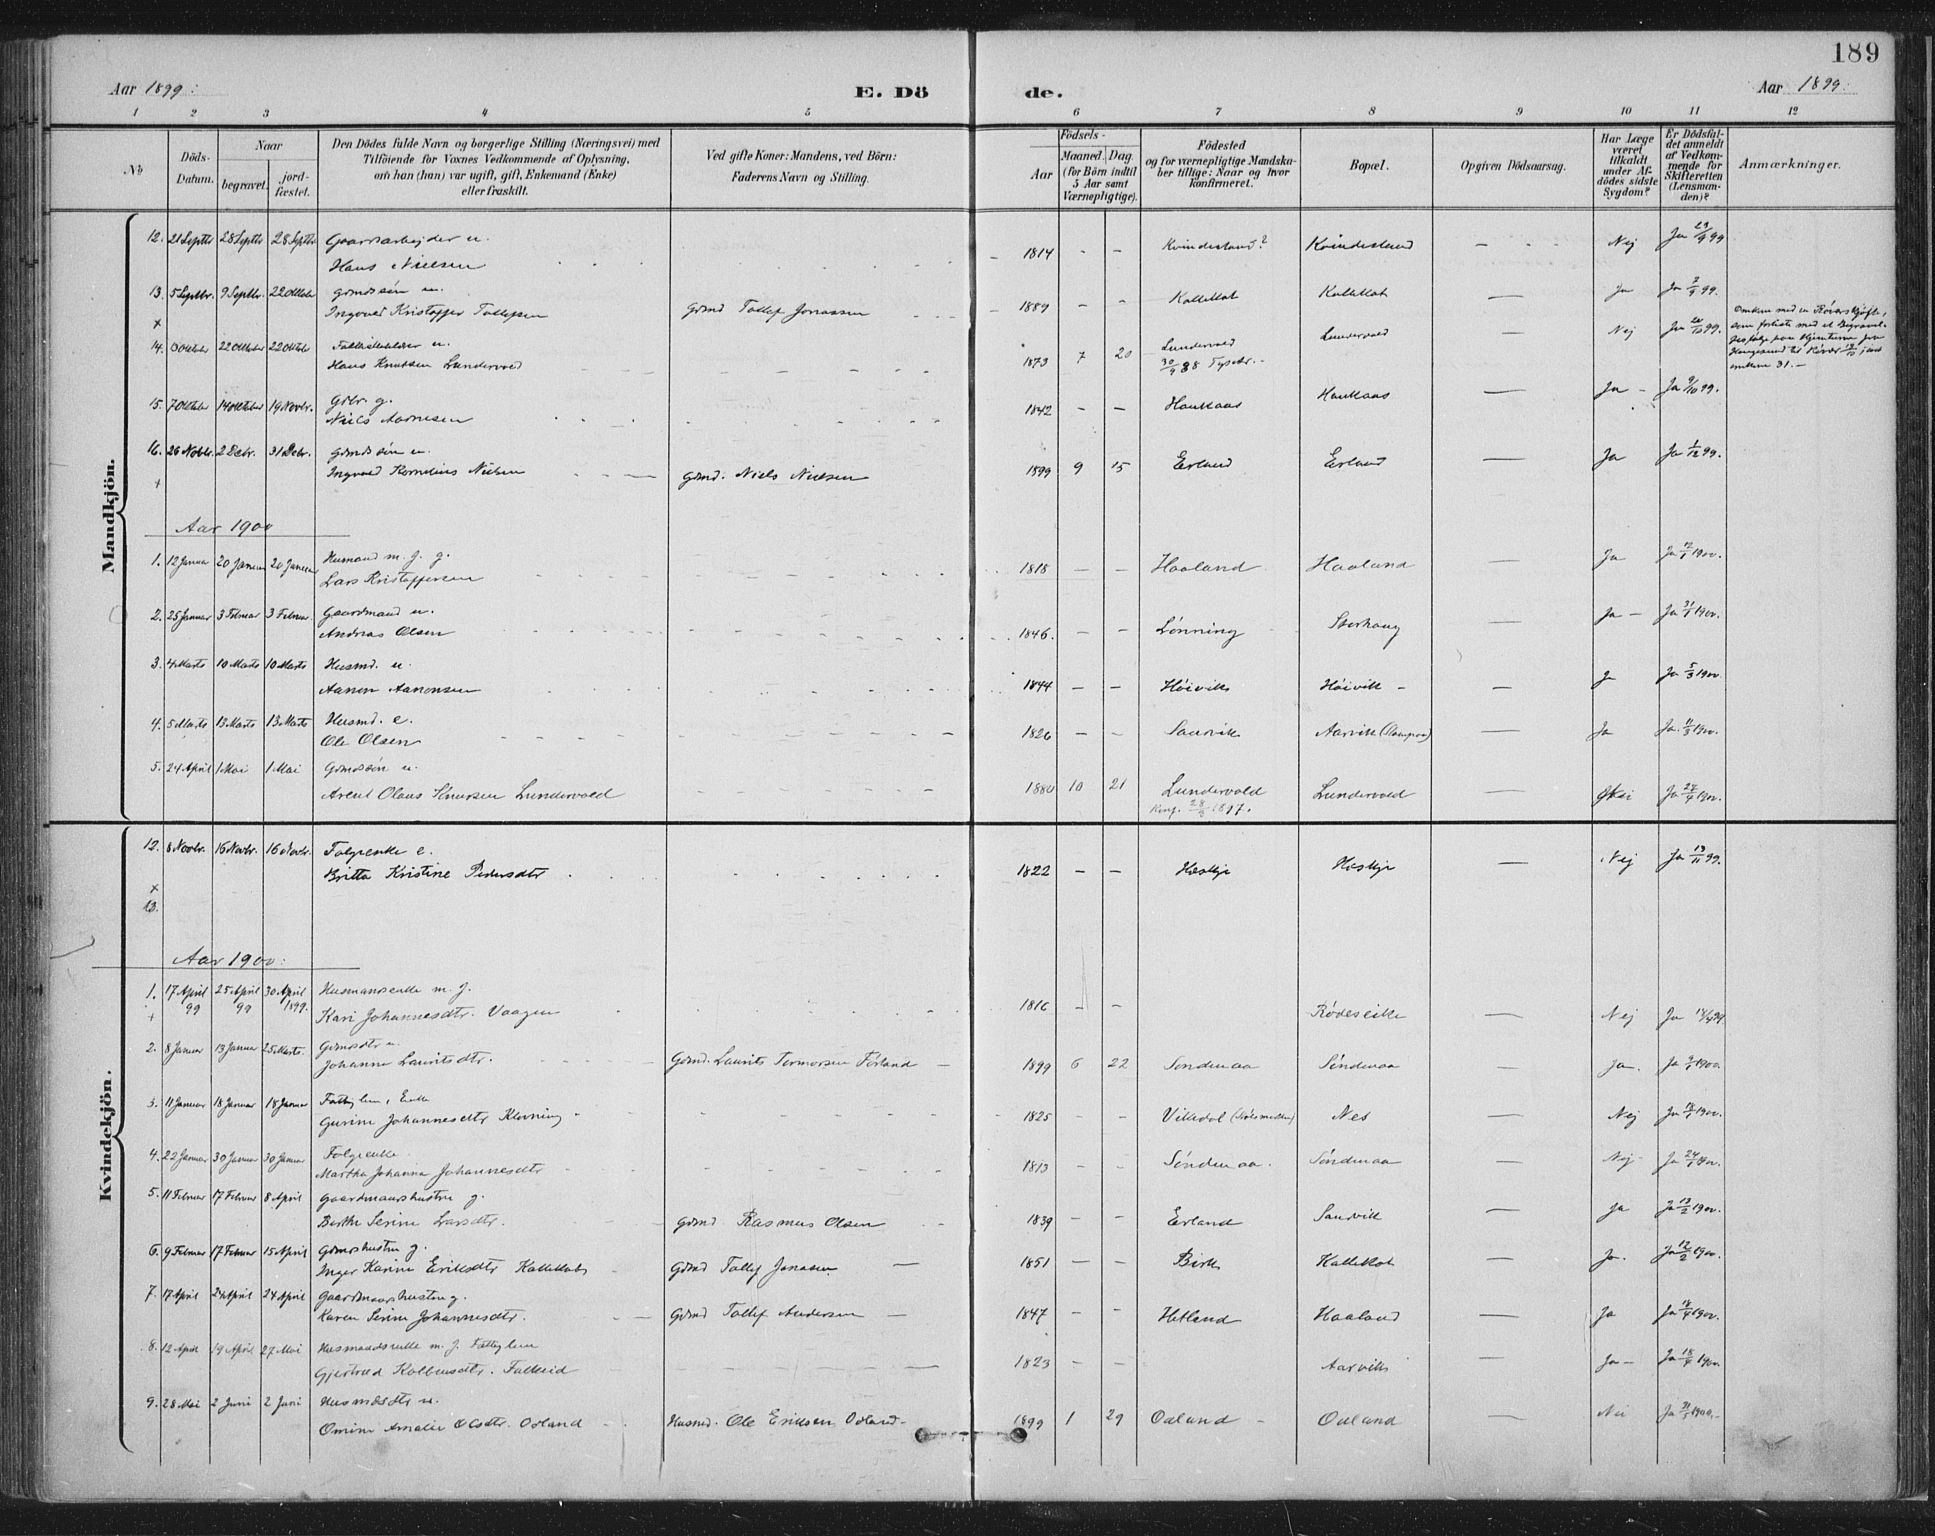 189
Aar 1899: E. Dö de. Aar 1899:
1 2 3 4 5 6 7 8 9 10 11 12
No
Döds-Datum.
Naar
begravet.
jord-fæstet.
Den Dödes fulde Navn og borgerlige Stilling (Næringsvei) med
Tilföiende for Voxnes Vedkommende af Oplysning,
om han (hun) var ugift, gift, Enkemand (Enke)
eller fraskilt.
Ved gifte Koner: Mandens, ved Börn:
Faderens Navn og Stilling.
Födsels-
Aar
Maaned. Dag
(for Börn indtil
5 Aar samt
Værnepligtige).
Födested
og for værnepligtige Mandska-
ber tillige: Naar og hvor
konfirmeret.
Bopæl.
Opgiven Dödsaarsag.
Har Læge
været
tilkaldt
under Af-
dödes sidste
Sygdom?
Er Dödsfal-
det anmeldt
af Vedkom-
mende for
Skifteretten
(Lensman-
den)?
Anmærkninger.
Mandkjön.
12. 21 Septbr 28 Septbr 28 Septbr Gaardarbejder u.
Hans Nielsen 1814 - - Kvindesland? Kvindesland - Nej Ja 23/9 99
13. 5 Septbr. 9 Septbr. 22 Oktober Grmdssön u.
Ingvald Kristoffer Tollefsen Grmd Tollef Jonassen 1889 - - Kallekot Kallekot - Ja Ja 7/9 99.
14. Oktober 22 Oktober 22 Oktober
Hans Knutsen Lundervold 1873 7 20 Lundervold 30/9 88 Tysvær. Lundervold Nej Ja 99.
Omkom med en Röværskjöite,
som forliste med et Begravel-
15. 7 Oktober 14 Oktober 19 Novbr. Grbr. g.
Niels Aamesen 1842 - - Haukaas Haukaas - Ja - Ja 9/10 99.
16. 26 Novbr. 2 Debr. 31 Debr. Grmdssön u.
Ingvald Kornelius Nielsen Grmd. Niels Nielsen 1899 9 15 Erland Erland - Ja Ja 1/12 99.
Aar 1900
1. 12 Januar 20 Januar 20 Januar Husmand m. J. g.
Lars Kristoffersen 1818 - - Haaland Haaland - Ja Ja 1900.
2. 25 Januar 3 Februar 3 Februar Gaardmand u.
Andreas Olsen 1846. - - Lönning Storhaug - Ja - Ja 31/1 1900.
3. 4 Marts 10 Marts 10 Marts Husmd. u.
Aanon Aanonsen 1844 - - Höivik Höivik - - Ja Ja 5/3 1900.
4. 5 Marts 13 Marts 13 Marts Husmd. e.
Ole Olsen 1826 - - Sandvik Aarvik - Ja Ja. 11/3 1900.
5. 24 April 1 Mai 1 Mai Grmdssön u.
Arent Olaus Knutsen Lundervold 1880 10 21 Lundervold Konf. 1897. Lundervold - Ja 24/4 1900.
Kvindekjön.
12. 8 Novbr. 16 Novbr. 16 Novbr. Folgeenke e.
Britta Kristine Pedersdtr 1822 - - Hæskje Hæskje - Nej Ja 13/11 99.
13.
Aar 1900:
1. 17 April 99 25 April 99 30 April 1899. Husmandsenke m. J.
Kari Johannesdtr. Vaagen 1816 - - Rödeseike - Nej Ja 99.
2. 8 Januar 13 Januar 25 Marts. Grmdsdtr u.
Johanne Lauritsdtr. Grmd. Laurits Tormorsen Förland 1899 6 22 Söndenaa Söndenaa - Ja. Ja 1900.
3. 11 Januar 18 Januar 18 Januar Fattiglem, Enke
Gurine Johannesdtr Klovning 1825 - - Vikedal Nes - Nej Ja 1900.
4. 22 Januar 30 Januar 30 Januar Folgeenke
Martha Johanna Johannesdtr 1813 - - Söndenaa. Söndenaa - Nej - Ja 24/1 1900.
5. 11 Februar 17 Februar 8 April Gaardmandshustru g.
Berthe Serine Larsdtr. Grmd Rasmus Olsen 1839 - - Erland Sandvik - Ja Ja 13/2 1900.
6. 9 Februar 17 Februar 15 April Grmdshustru g.
Inger Karine Eriksdtr Kallekot Grmd Tollef Jonassen 1851 - - Birk Kallekot - Ja. Ja 12/2 1900.
7. 17 April 24 April 24 April Gaardmandshustru g.
Karen Serine Johannesdtr. Grmd Tollef Andersen 1847 - - Hetland Haaland - Ja Ja 18/4 1900.
8. 12 April 19 April 27 Mai Husmandsenke m. J. Fattiglem
Gjertrud Kolbensdtr. Falkeid 1823 - - Aarvik - Ja - Ja 18/4 1900.
9. 28 Mai 2 Juni 2 Juni Husmdsdtr u.
Omine Amalie Olsdtr. Odland Husmd. Ole Eriksen Odland 1899 1 29 Odland Odland - Nei Ja 31/5 1900.